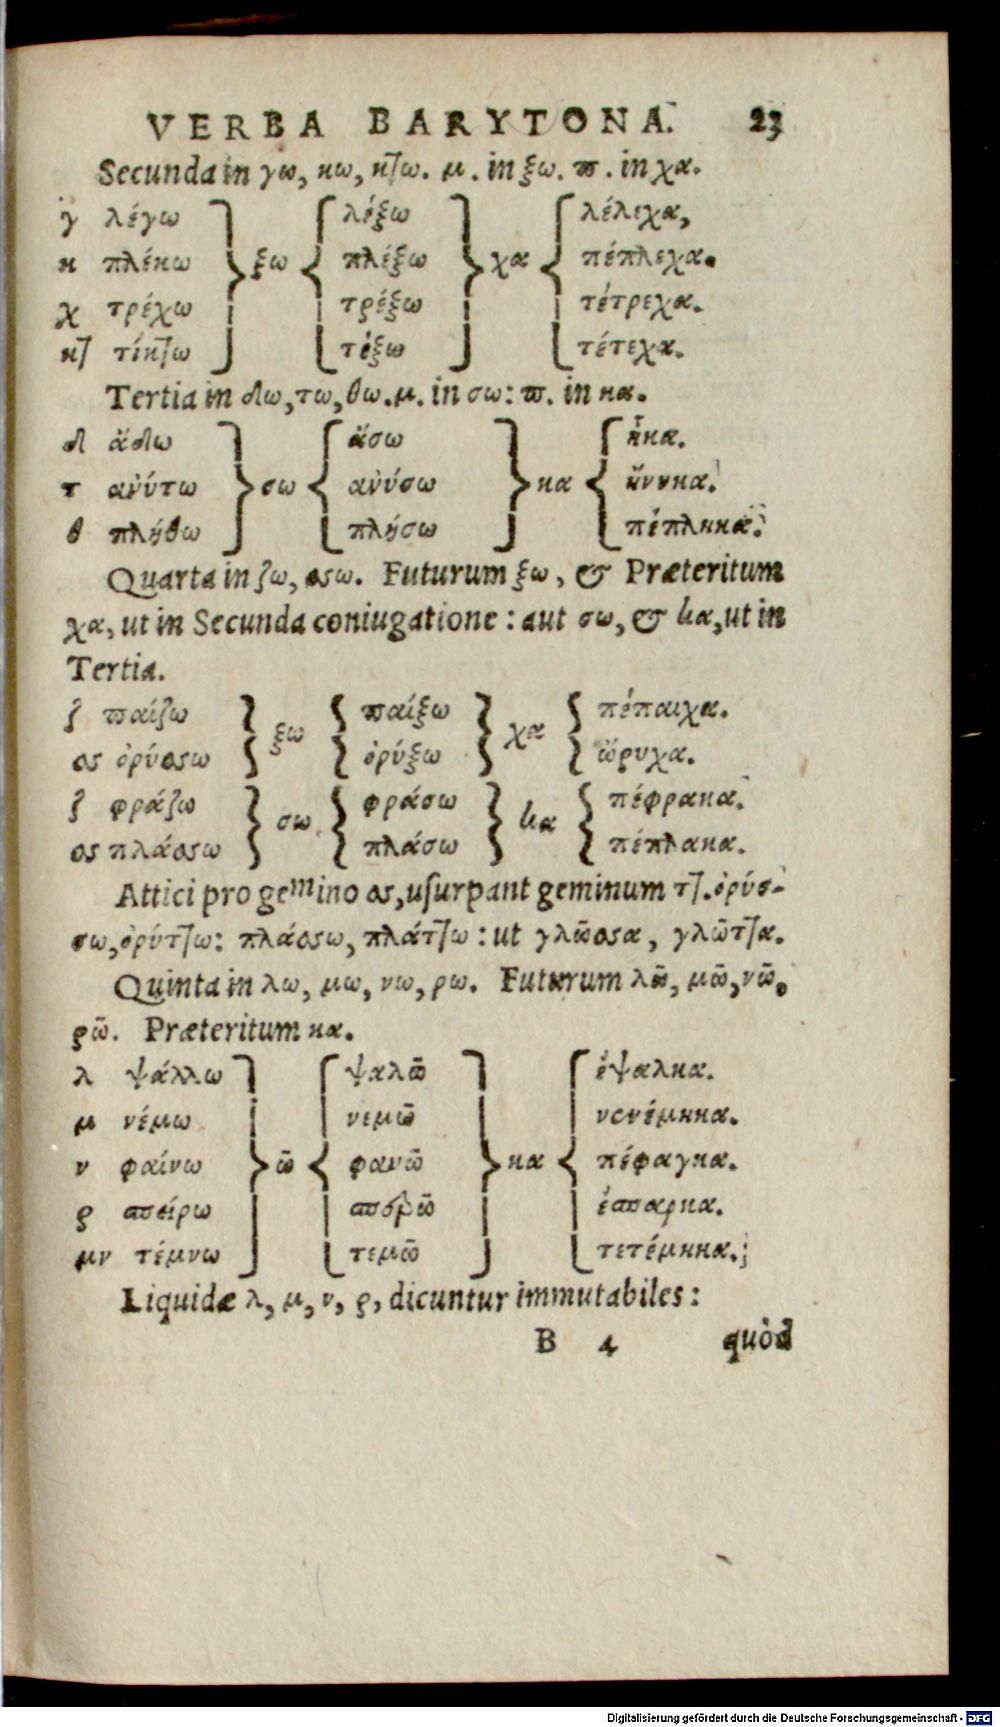 VERBA BARYTONA. 23
Secunda in γω, κω, κτω. μ. in ξω. π. in χα.
γ λέγω } ξω { λέξω } χα { λέλεχα,
κ πλέκω πλέξω πέπλεχα.
χ τρέχω τρέξω τέτρεχα.
κτ τίκτω τέξω τέτεχα.
Tertia in δω, τω, θω. μ. in σω: π. in κα.
δ ἄδω } σω { ἄσω } κα { ἦκα.
τ ανύτω ανύσω ἤνυκα.
θ πλήθω πλήσω πέπληκα.
Quarta in ζω, σσω. Futurum ξω, & Præteritum
χα, ut in Secunda coniugatione: aut σω, & κα, ut in
Tertia.
ζ παίζω } ξω { παίξω } χα { πέπαιχα.
σσ ὀρύσσω ὀρύξω ὤρυχα.
ζ φράζω } σω { φράσω } κα { πέφρακα.
σσ πλάσσω πλάσω πέπλακα.
Attici pro gemino σσ, uſurpant geminum ττ. ὀρύσ-
σω, ὀρύττω: πλάσσω, πλάττω: ut γλῶσσα, γλῶττα.
Quinta in λω, μω, νω, ρω. Futurum λῶ, μῶ, νῶ,
ρῶ. Præteritum κα.
λ ψάλλω } ῶ { ψαλῶ } κα { ἔψαλκα.
μ νέμω νεμῶ νενέμηκα.
ν φαίνω φανῶ πέφαγκα.
ρ σπείρω σπερῶ ἔσπαρκα.
μν τέμνω τεμῶ τετέμηκα.
Liquidæ λ, μ, ν, ρ, dicuntur immutabiles:
B 4 quòd
Digitalisierung gefördert durch die Deutsche Forschungsgemeinschaft - DFG